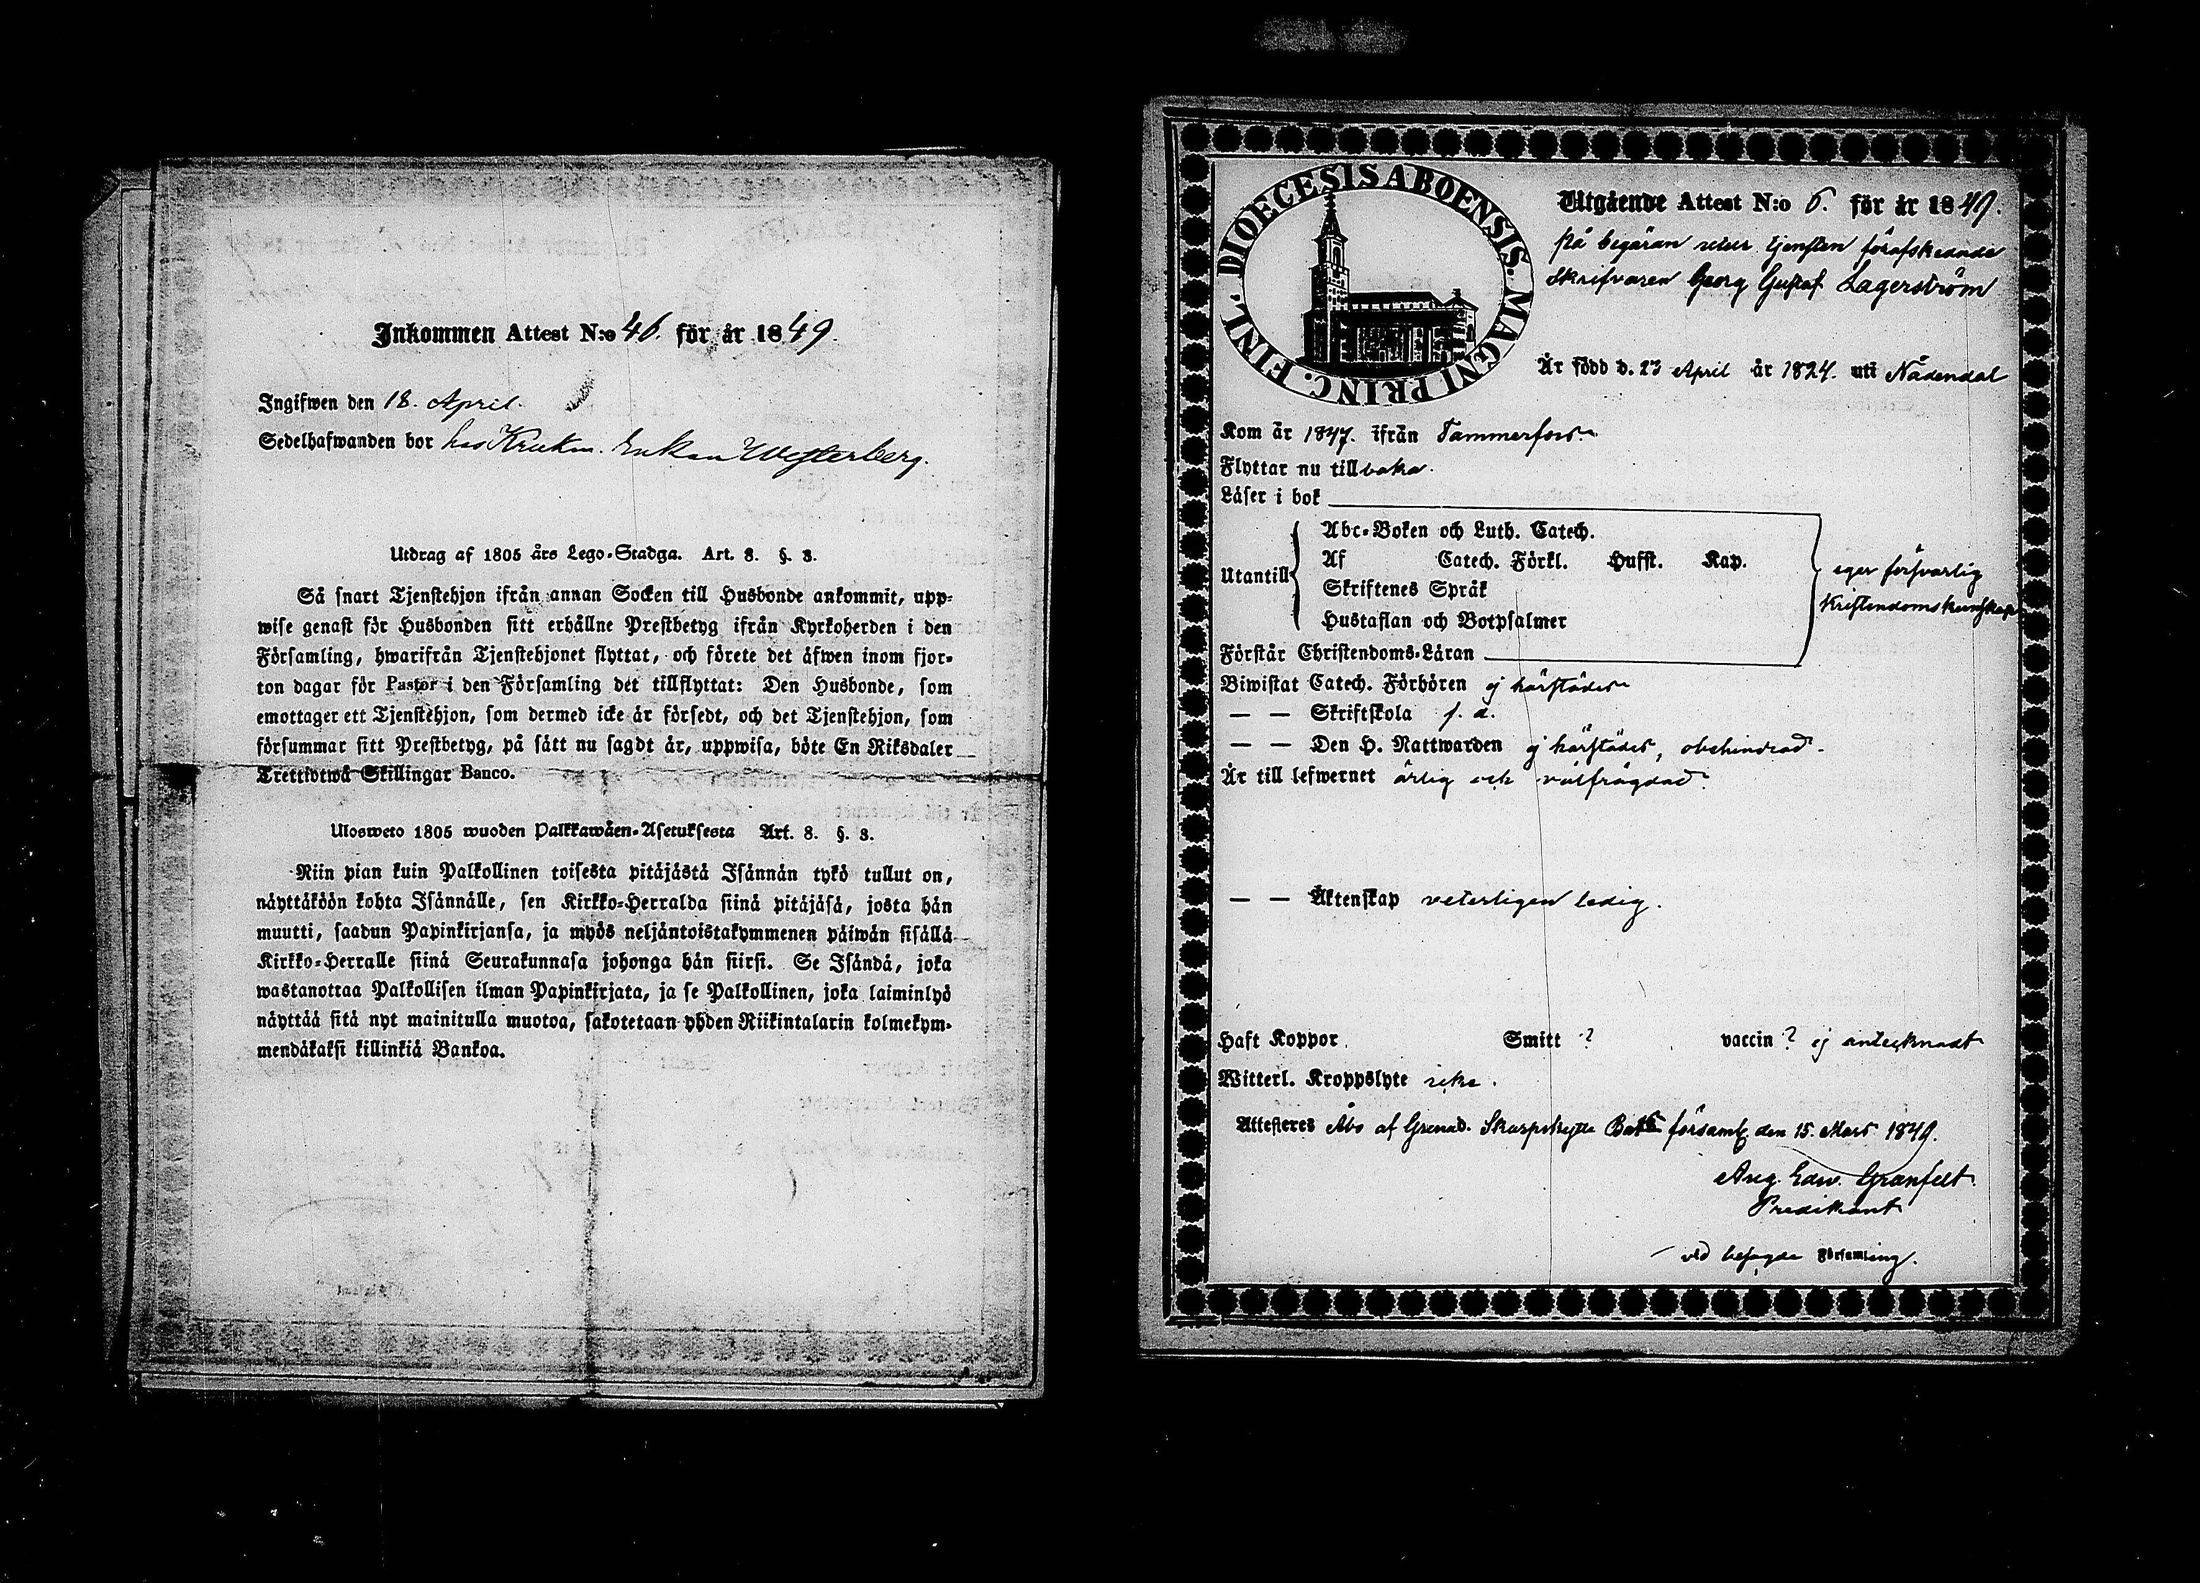 Inkommen Attest N:o 46. för år 1849.
Ingifwen den 18. April.
Sedelhafwanden bor hos Krukm. Enkan Westerberg.
Utdrag af 1805 års Lego-Stadga. Art. 8. §. 3.
Så snart Tjenstehjon ifrån annan Socken till Husbonde ankommit, upp-
wise genast för Husbonden sitt erhållne Prestbetyg ifrån Kyrkoherden i den
Församling, hwarifrån Tjenstehjonet flyttat, och förete det äfwen inom fjor-
ton dagar för Pastor i den Församling det tillflyttat: Den Husbonde, som
emottager ett Tjenstehjon, som dermed icke är försedt, och det Tjenstehjon, som
försummar sitt Prestbetyg, på sätt nu sagdt är, uppwisa, böte En Riksdaler
Trettiotwå Skillingar Banco.
Ulosweto 1805 wuoden Palkkawäen-Asetuksesta Art. 8. §. 3.
Niin pian kuin Palkollinen toisesta pitäjästä Isännän tykö tullut on,
näyttäköön kohta Isännälle, sen Kirkko-Herralda siinä pitäjäsä, josta hän
muutti, saadun Papinkirjansa, ja myös neljäntoistakymmenen päiwän sisällä
Kirkko-Herralle siinä Seurakunnasa johonga hän siirsi. Se Isändä, joka
wastanottaa Palkollisen ilman Papinkirjata, ja se Palkollinen, joka laiminlyö
näyttää sitä nyt mainitulla muotoa, sakotetaan yhden Riikintalarin kolmekym-
mendäkaksi killinkiä Bankoa.
DIOECESIS ABOENSIS. MAGNI PRINC. FINL.
Utgående Attest N:o 6. för år 1849.
På begäran utur tjensten förafskedade
Skrifvaren Georg Gustaf Lagerström
Är född d. 23 April år 1824. uti Nådendal
Kom år 1847. ifrån Tammerfors
Flyttar nu tillbaka.
Läser i bok
Abc-Boken och Luth. Catech.
Utantill Af Catech. Förkl. Hufst. Kap. eger försvarlig
Skriftenes Språk Kristendomskunskap
Hustaflan och Botpsalmer
Förstår Christendoms-Läran
Biwistat Catech. Förhören ej härstädes
— — Skriftskola s. d.
— — Den H. Nattwarden ej härstädes, obehindrad
Är till lefwernet ärlig och välfrägdad.
— — Äktenskap veterligen ledig.
Haft Koppor Smitt ? vaccin ? ej antecknadt
Witterl. Kroppslyte icke.
Attesteres Åbo af Grenad. Skarpskytte Bat. församlg den 15. Mars 1849.
Aug. Edw. Granfelt
Predikant
vid besagde Församling.